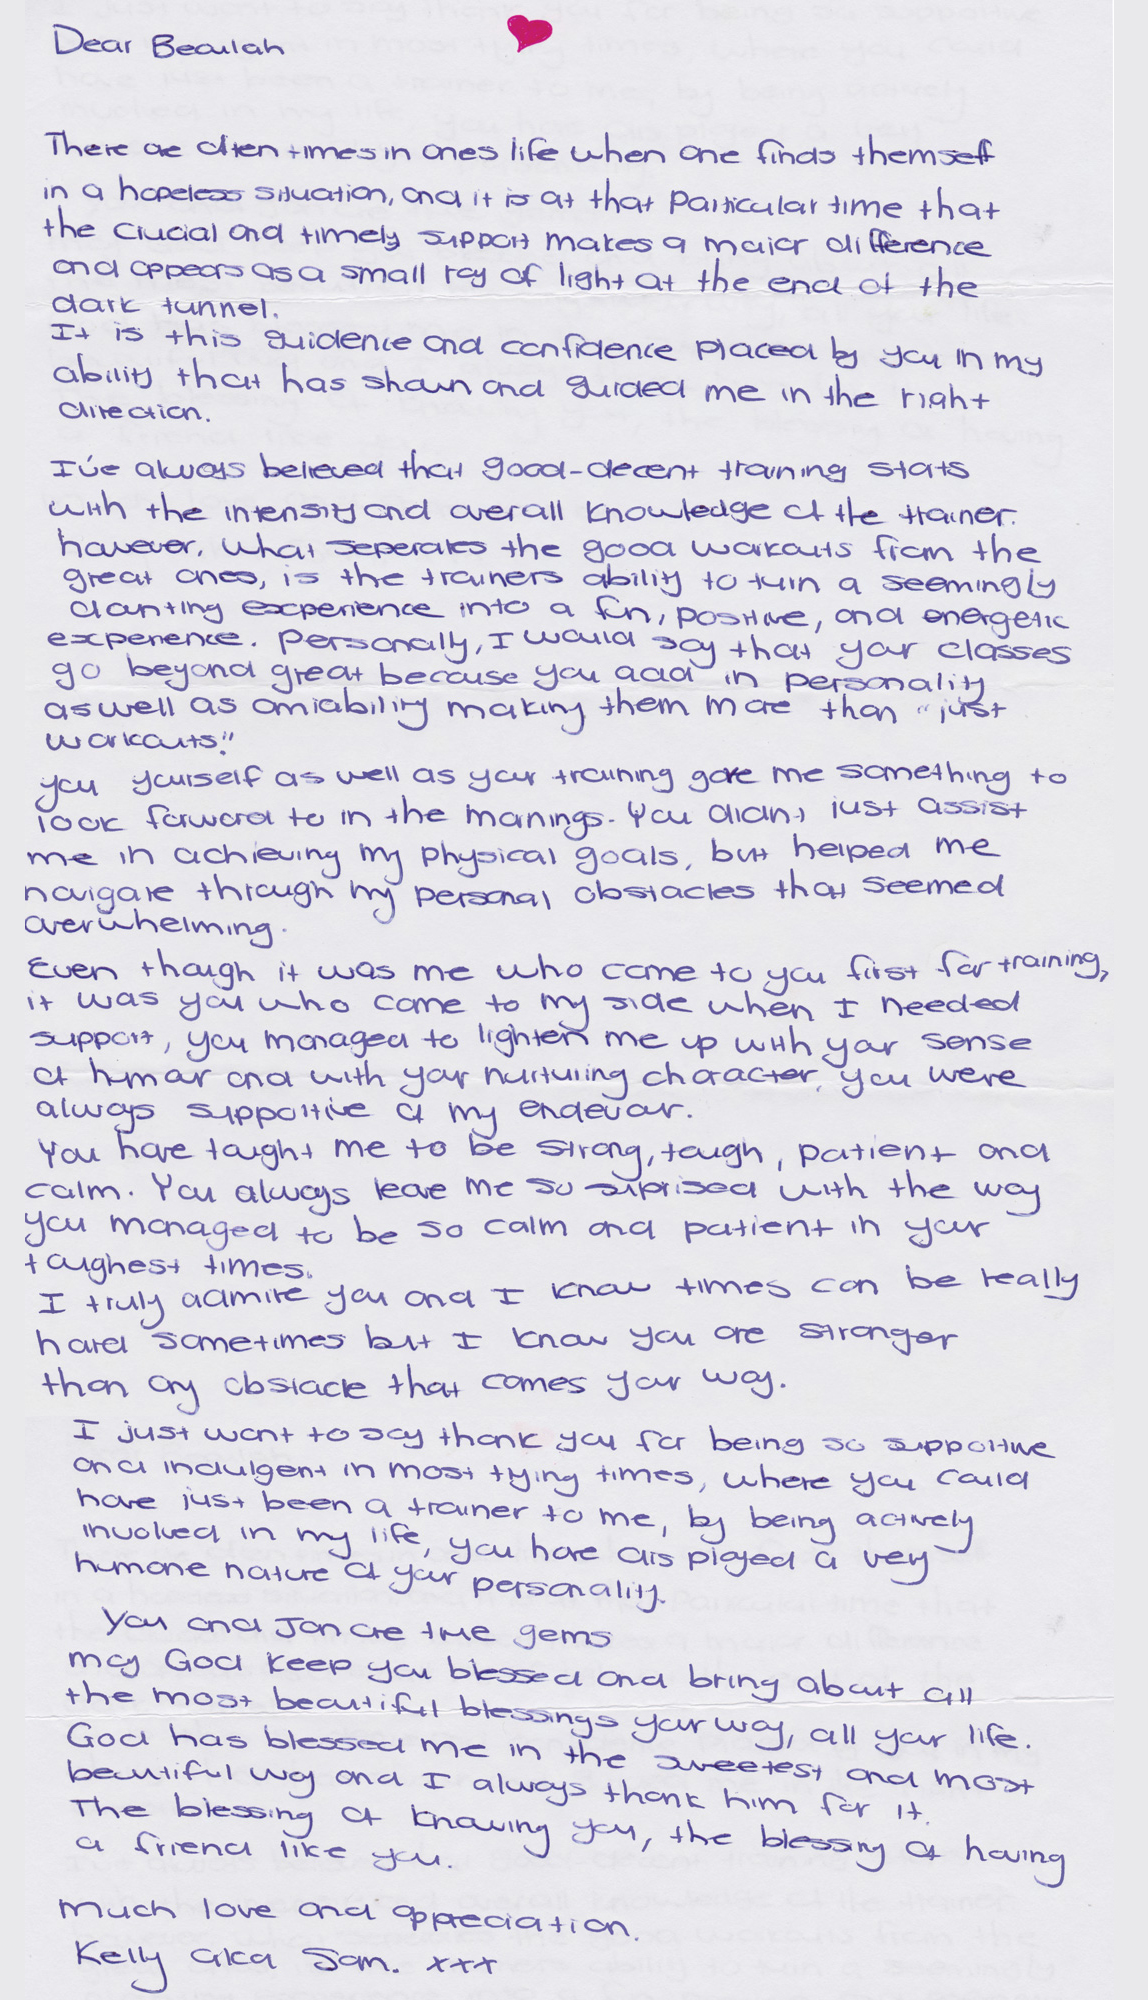 Dear Beaulah
There are often times in ones life when one finds themself
in a hopeless situation, and it is at that particular time that
the crucial and timely support makes a major difference
and appears as a small ray of light at the end of the
dark tunnel.
It is this guidence and confidence placed by you in my
ability that has shown and guided me in the right
direction.
I've always believed that good-decent training stats
with the intensity and overall knowledge of the trainer.
however, what seperates the good workouts from the
great ones, is the trainers ability to turn a seemingly
daunting experience into a fun, positive, and energetic
experience. Personally, I would say that your classes
go beyond great because you add in personality
as well as amiability making them more than "just
workouts."
you yourself as well as your training gave me something to
look forward to in the mornings. You didn't just assist
me in achieving my physical goals, but helped me
navigate through my personal obstacles that seemed
overwhelming.
Even though it was me who came to you first for training,
it was you who came to my side when I needed
support, you managed to lighten me up with your sense
of humor and with your nurturing character, you were
always supportive of my endevour.
You have taught me to be strong, tough, patient and
calm. You always leave me so surprised with the way
you managed to be so calm and patient in your
toughest times.
I truly admire you and I know times can be really
hard sometimes but I know you are stronger
than any obstacle that comes your way.
I just want to say thank you for being so supportive
and indulgent in most trying times, where you could
have just been a trainer to me, by being actively
involved in my life, you have displayed a very
humane nature of your personality.
You and Jon are true gems
may God keep you blessed and bring about all
the most beautiful blessings your way, all your life.
God has blessed me in the sweetest and most
beautiful way and I always thank him for it.
The blessing of knowing you, the blessing of having
a friend like you.
Much love and appreciation.
Kelly aka Sam. xxx